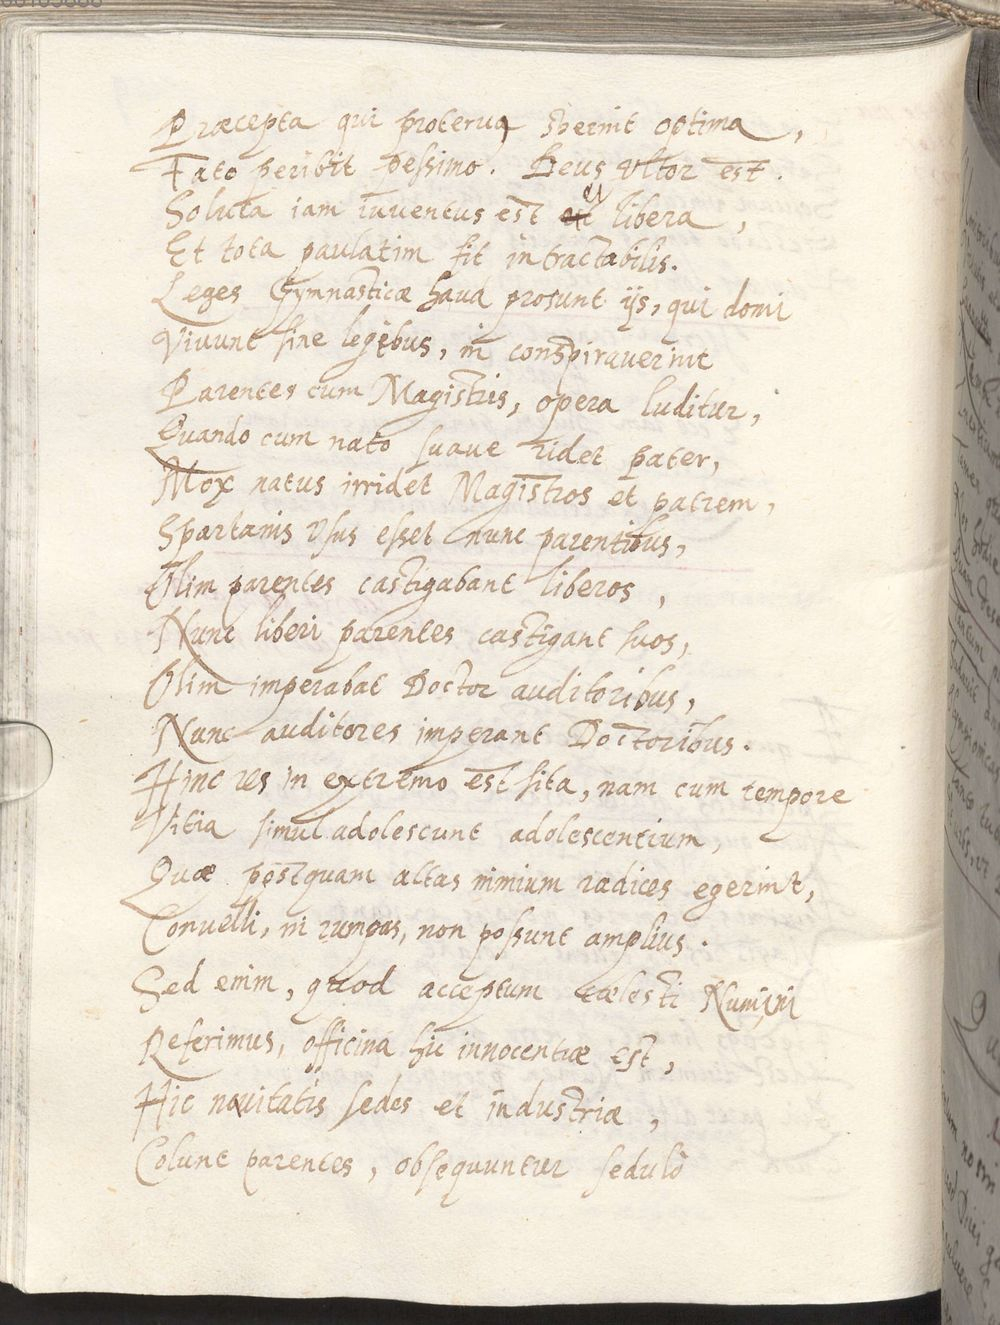 Præcepta qui proteruq spernit optima,
Fato peribit pessimo. Deus vltor est.
Soluta iam iuuentus est et libera,
Et tota paulatim fit intractabilis.
Leges Gymnasticæ haud prosunt ijs, qui domi
Viuunt sine legibus, ni conspirauerint
Parentes cum Magistris, opera luditur,
Quando cum nato suaue ridet pater,
Mox natus irridet Magistros et patrem,
Spartanis vsus esset nunc parentibus,
Olim parentes castigabant liberos,
Nunc liberi parentes castigant suos,
Olim imperabat Doctor auditoribus,
Nunc auditores imperant Doctoribus.
Hinc res in extremo est sita, nam cum tempore
Vitia simul adolescunt adolescentium,
Quæ postquam altas nimium radices egerint,
Conuelli, ni rumpas, non possunt amplius.
Sed enim, quod acceptum cœlesti Numini
Referimus, officina hic innocentiæ est,
Hic nouitatis sedes et industriæ,
Colunt parentes, obsequuntur sedulò